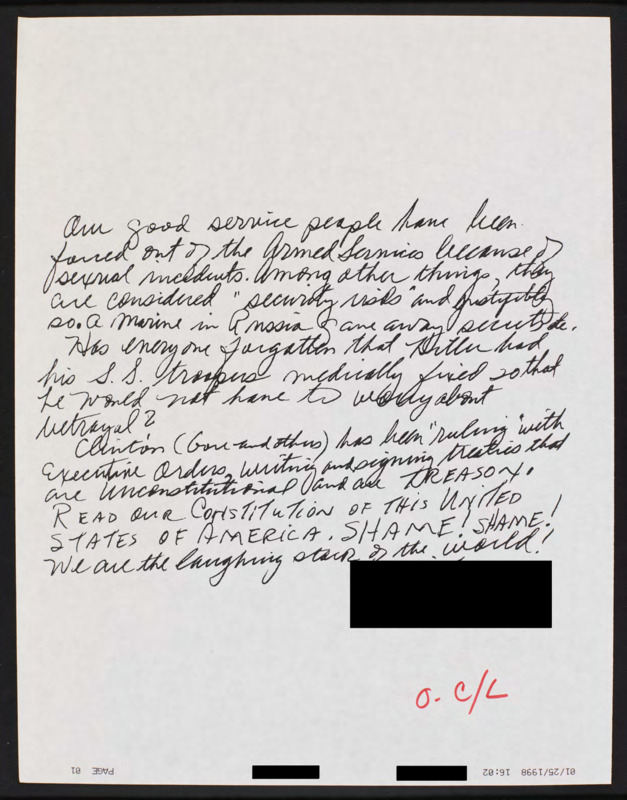 Our good service people have been
forced out of the Armed Services because of
sexual incidents. Among other things, they
are considered "security risks" and justifiably
so. A Marine in Russia gave away secrets etc.
Has everyone forgotten that Hitler had
his S.S. troopers medically fixed so that
he would not have to worry about
betrayal?
Clinton (Gore and others) has been "ruling" with
Executive Orders, writing and signing treaties that
are Unconstitutional and are TREASON.
READ OUR CONSTITUTION OF THIS UNITED
STATES OF AMERICA. SHAME! SHAME!
We are the laughing stock of the world!
O. C/L
PAGE 01
01/25/1998 16:02